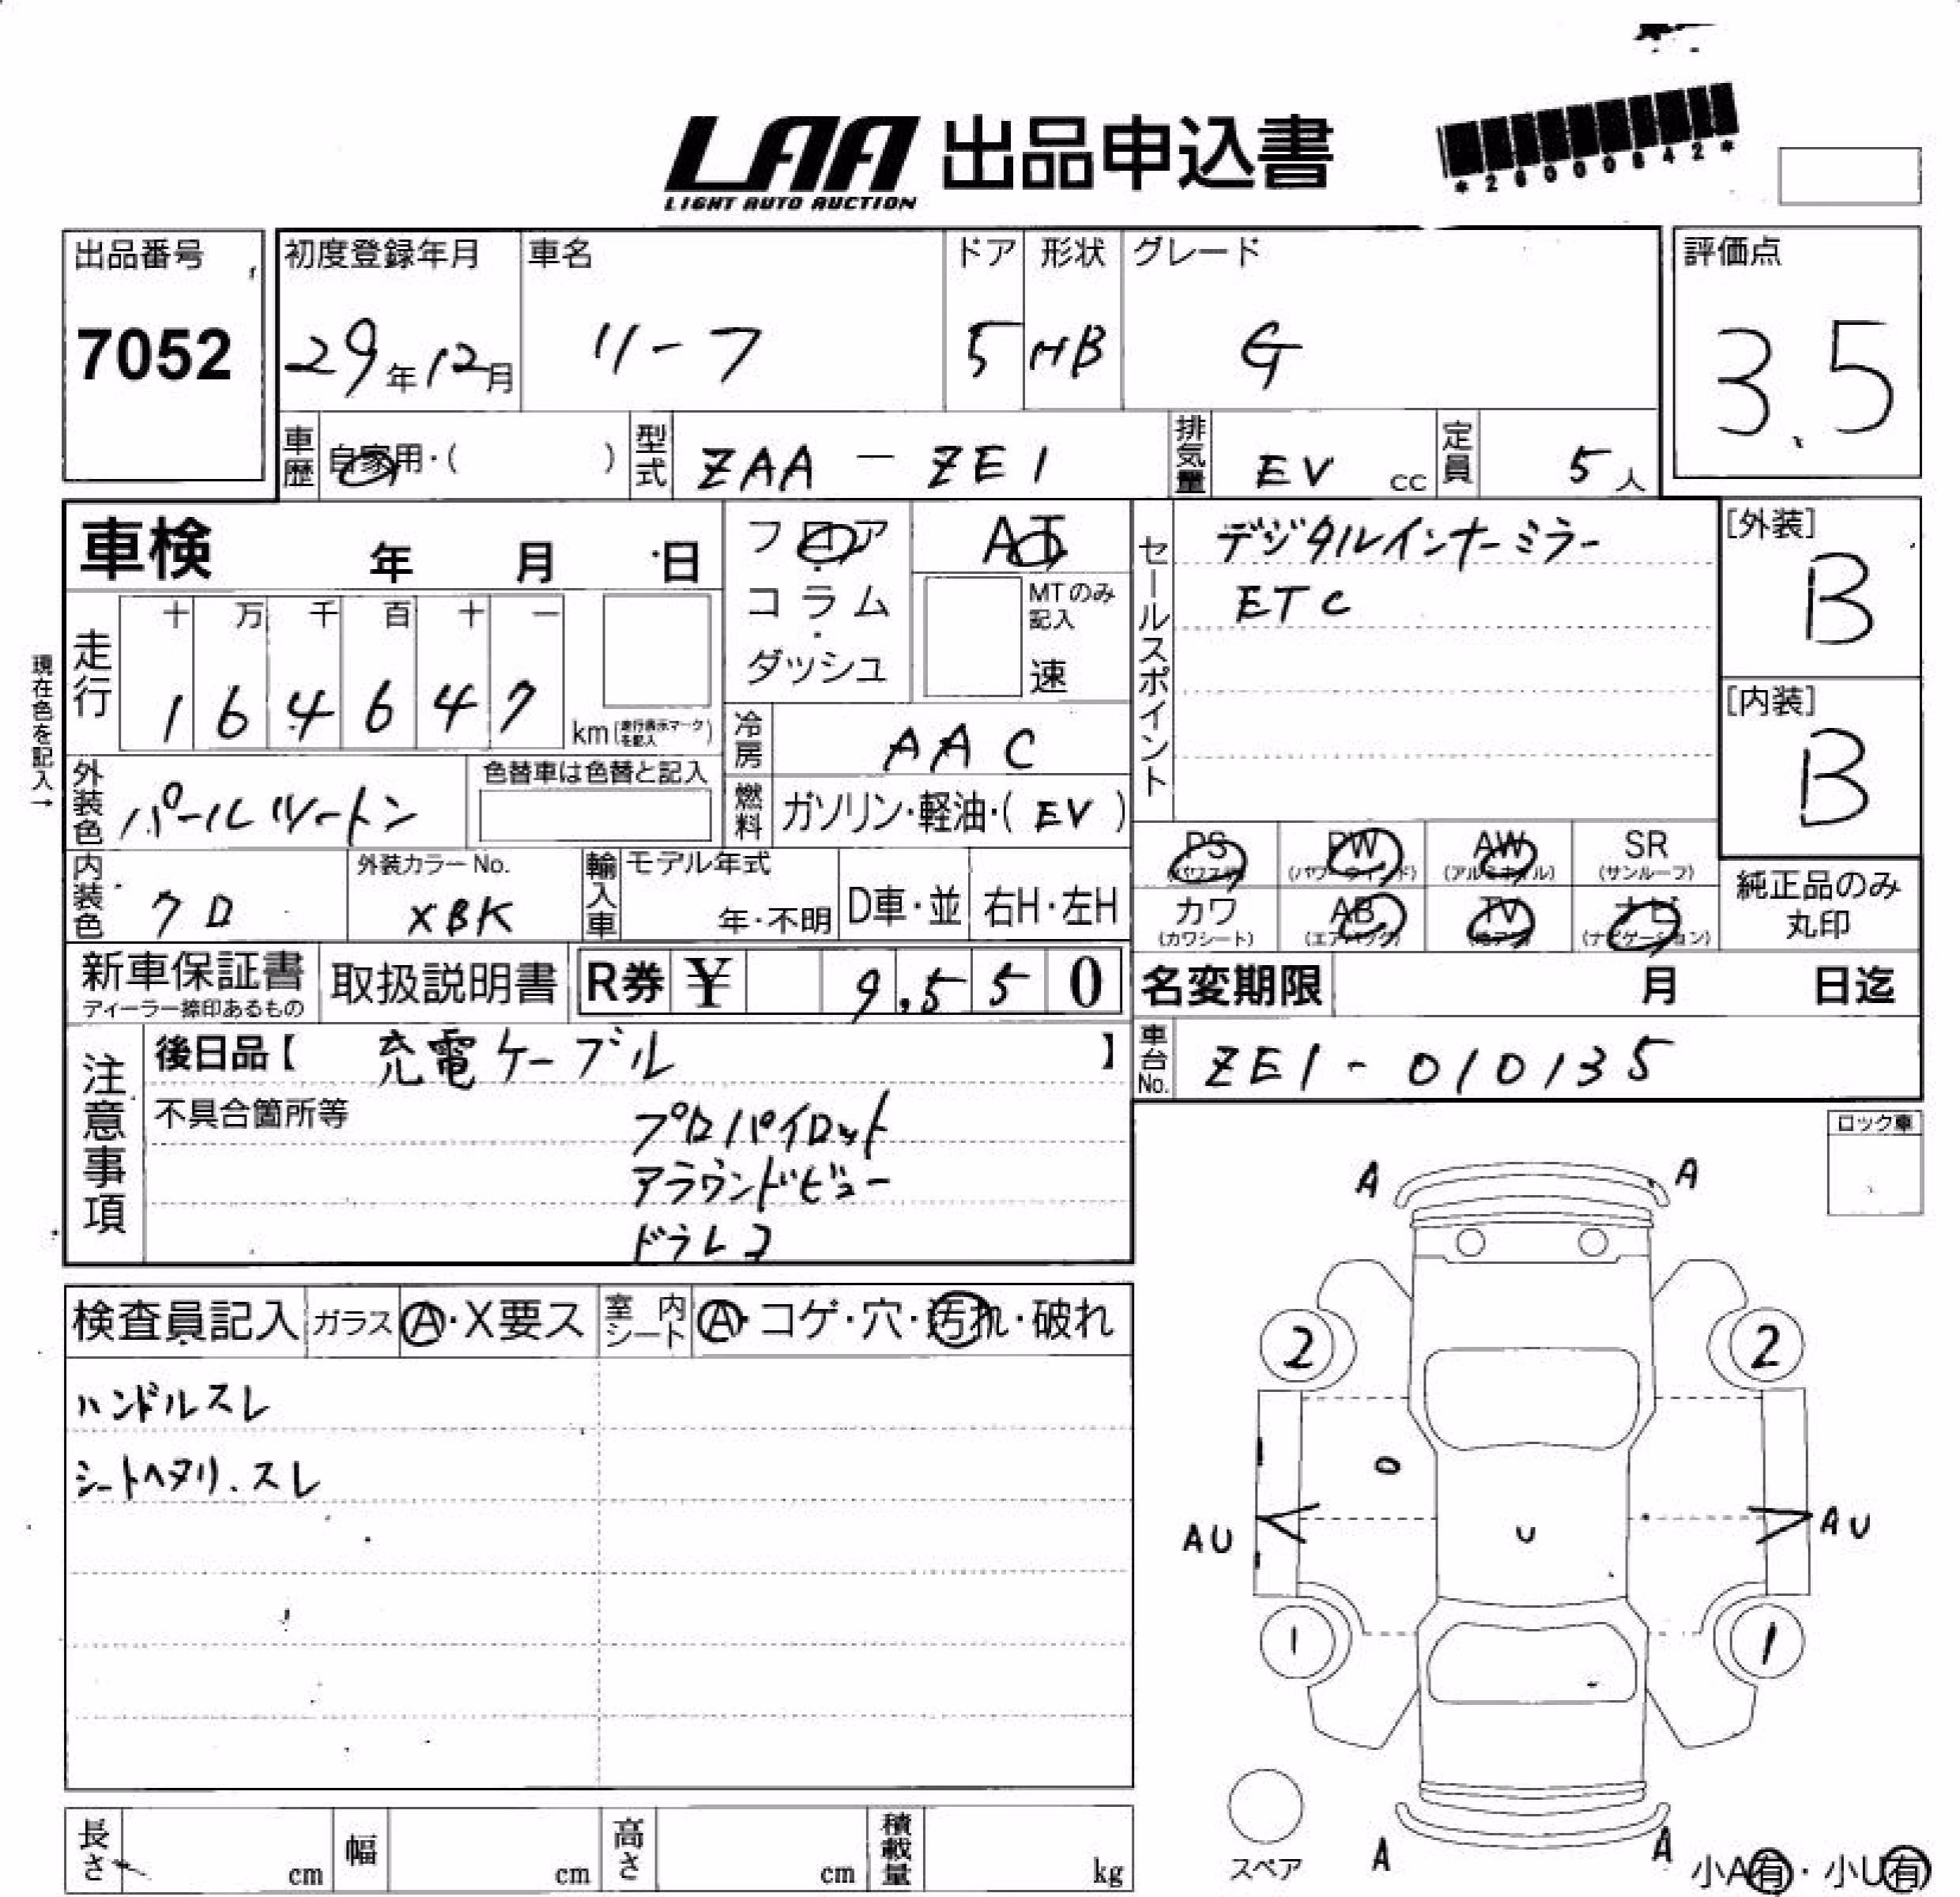 LAA 出品申込書
LIGHT AUTO AUCTION
*26000642*
出品番号
7052
初度登録年月
29年12月
車名
リーフ
ドア
5
形状
HB
グレード
G
評価点
3.5
車歴
自家用・( )
型式
ZAA - ZE1
排気量
EV cc
定員
5人
車検 年 月 日
フロア
・
コラム
・
ダッシュ
AT
MTのみ
記入
速
セールスポイント
デジタルインナーミラー
ETC
[外装]
B
[内装]
B
現在色を記入→
走行
十 万 千 百 十 一
1 6 4 6 4 7
km(走行表示マークを記入)
冷房
AAC
燃料
ガソリン・軽油・(EV)
外装色
パールツートン
色替車は色替と記入
内装色
クロ
外装カラーNo.
XBK
輸入車
モデル年式
年・不明
D車・並
右H・左H
PS
(パワステ)
PW
(パワーウインド)
AW
(アルミホイル)
SR
(サンルーフ)
カワ
(カワシート)
AB
(エアバック)
TV
ナビ
(ナビゲーション)
純正品のみ
丸印
新車保証書
ディーラー捺印あるもの
取扱説明書
R券 ¥ 9,550
名変期限 月 日迄
注意事項
後日品【 充電ケーブル 】
不具合箇所等
プロパイロット
アラウンドビュー
ドラレコ
車台No.
ZE1-010135
ロック車
検査員記入
ガラス
A・X要ス
室内シート
A・コゲ・穴・汚れ・破れ
ハンドルスレ
シートヘタリ.スレ
A A
2 2
AU U AU
1 1
スペア
A A
小A有・小U有
長さ cm
幅 cm
高さ cm
積載量 kg